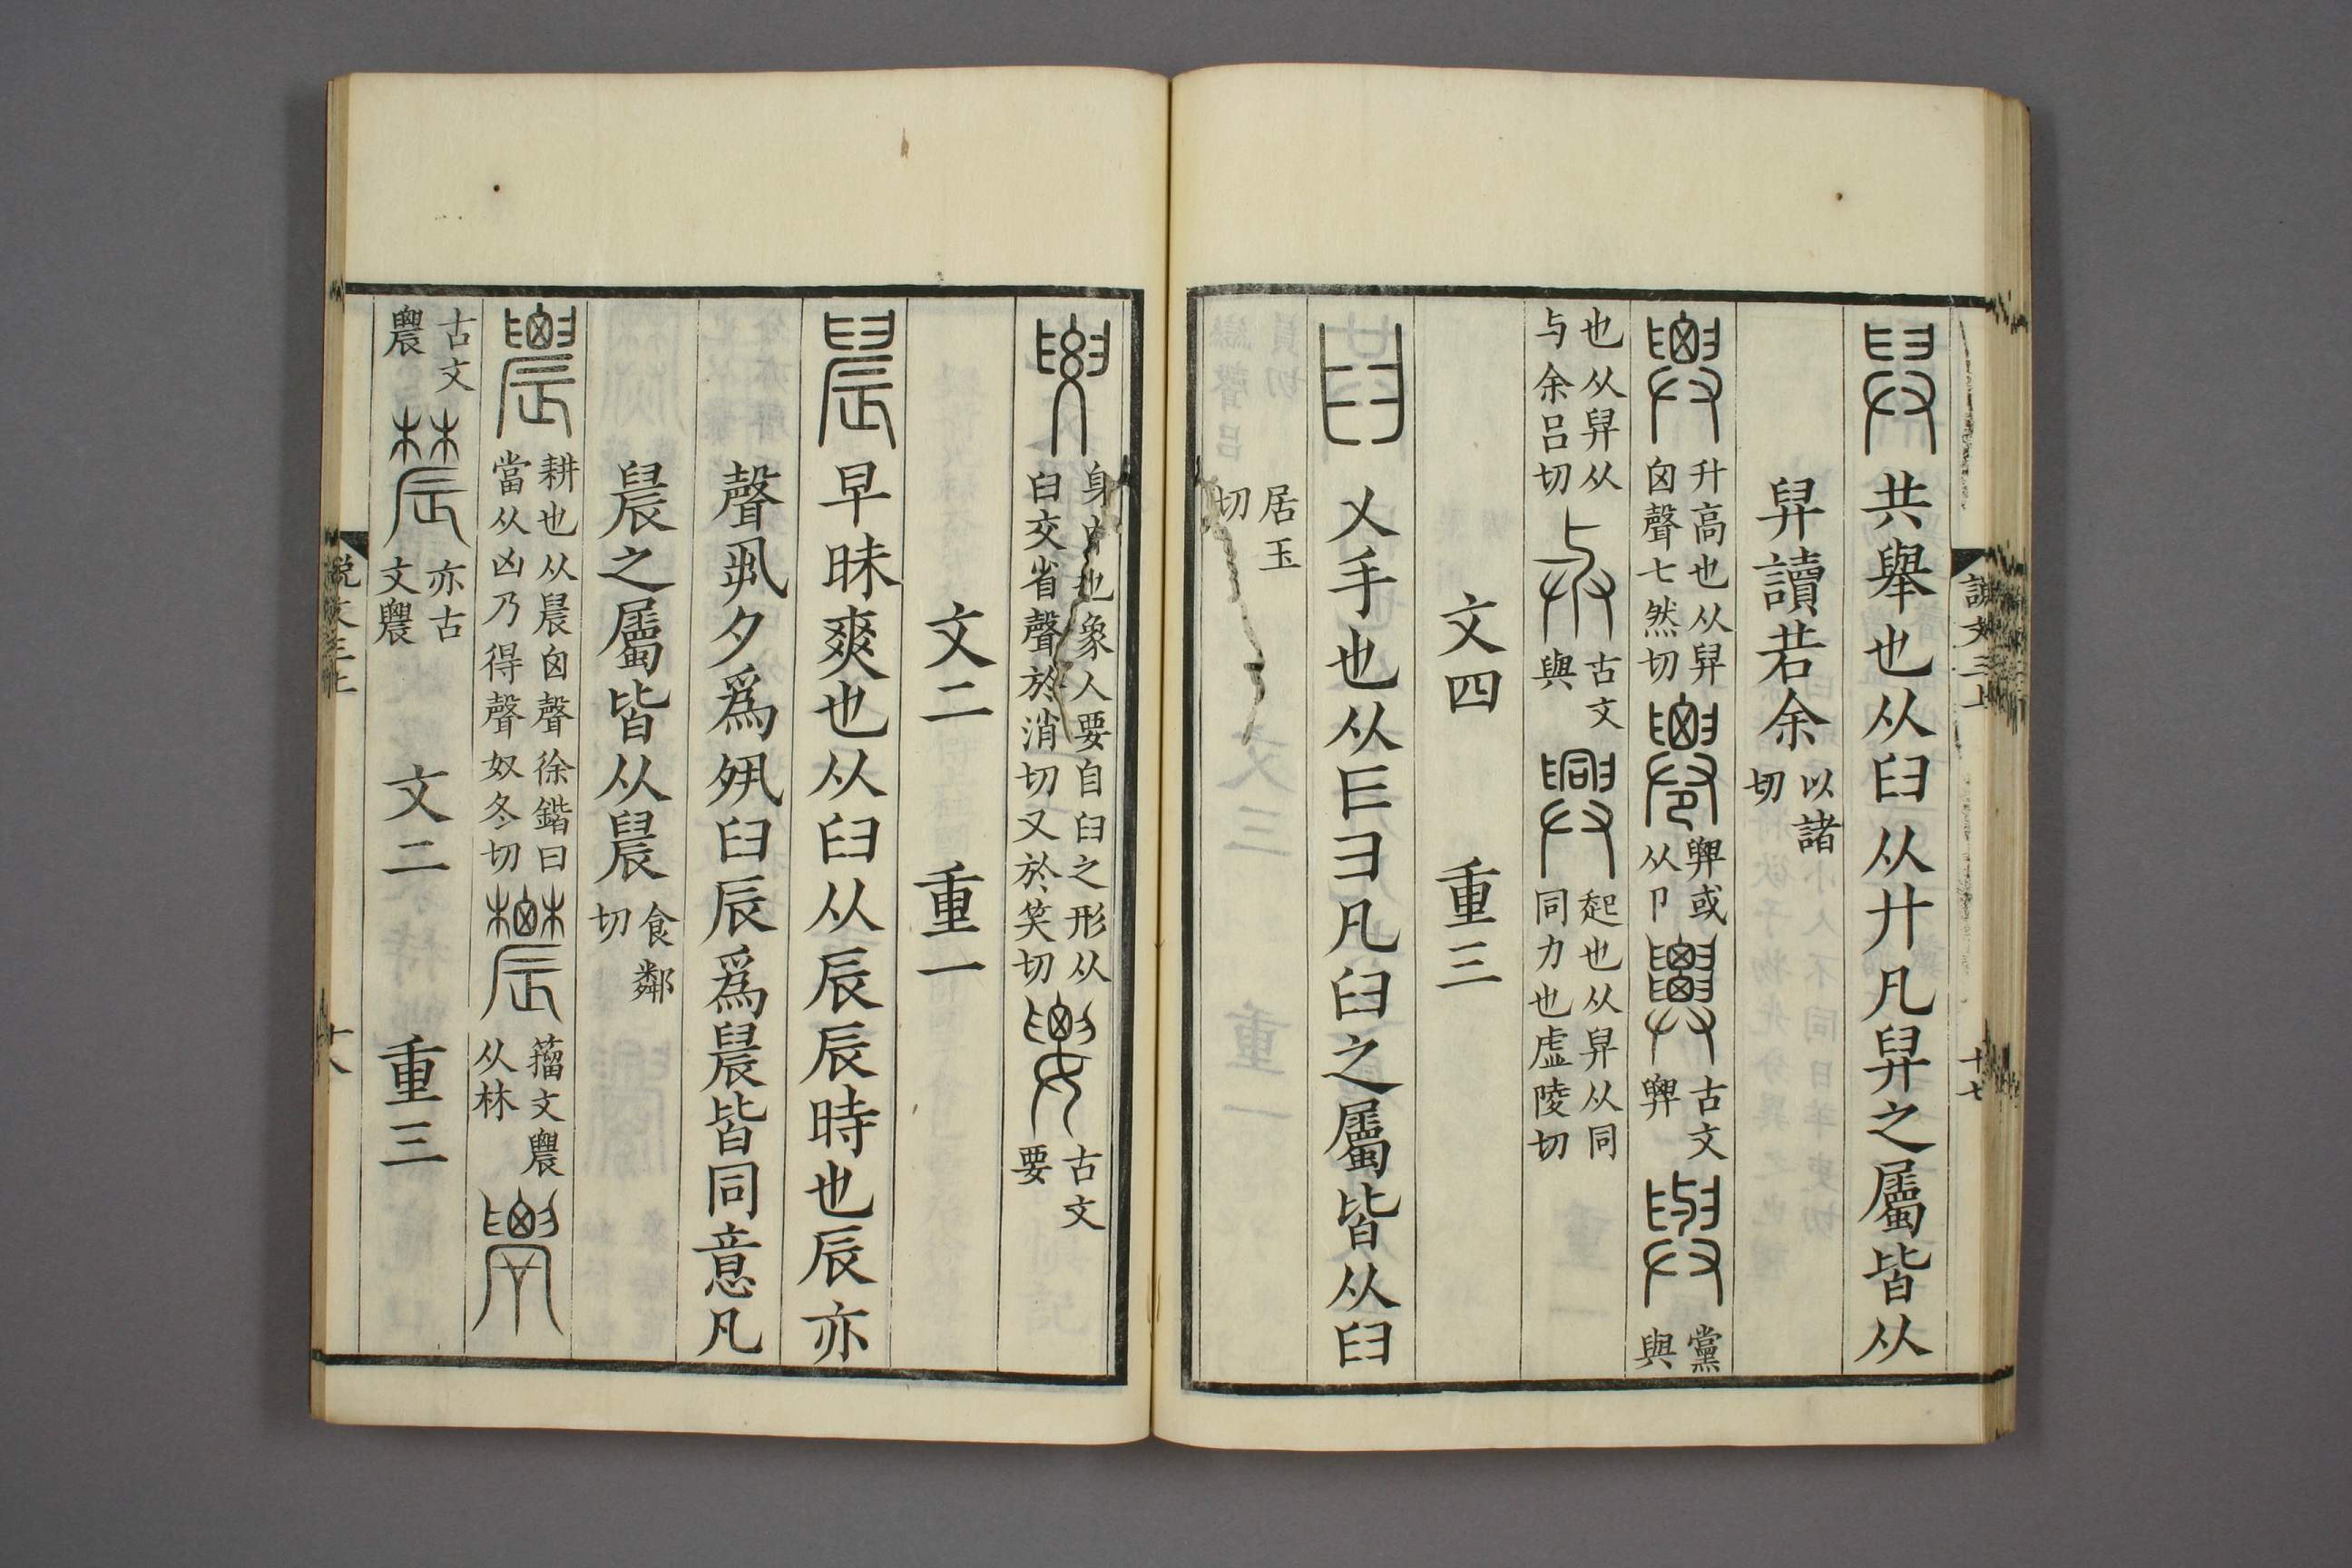 舁共舉也从𦥑从廾凡舁之屬皆从
舁讀若余以諸切
䙴升高也从舁囟聲七然切𨝍䙴或从卩𠨧古文䙴與黨與
也从舁从与余呂切𢌱古文與興起也从舁从同同力也虛陵切
文四 重三
𦥑叉手也从𦥑凡𦥑之屬皆从𦥑
居玉切
說文三上
十七
𦥼身中也象人要自𦥑之形从𦥑交省聲於消切又於笑切𡢗古文要
文二 重一
䢅早昧爽也从𦥑从辰辰時也辰亦
聲丮夕爲𡖊𦥑辰爲䢅皆同意凡
䢅之屬皆从䢅食鄰切
䢉耕也从䢅囟聲徐鍇曰當从凶乃得聲奴冬切𦦥籒文䢉从林𨑋
古文䢉𣊎亦古文䢉 文二 重三
說文三上
十八